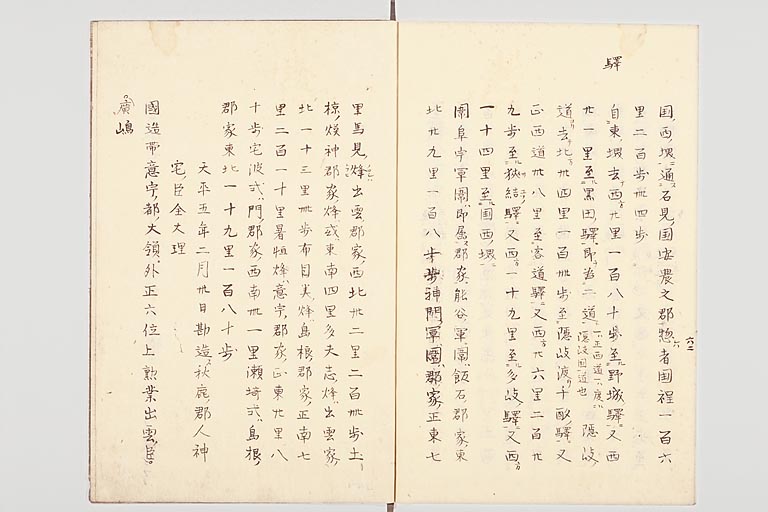 驛
国西堺通石見国安農之郡惣者国裎一百六
里二百歩卅四歩
自東堺去西廿里一百八十歩至野城驛又西
廿一里至黒田驛即為二道一正西道一度隠岐国道也隠岐
道去北卅四里一百卅歩至隠岐渡千酌驛又
正西道卅八里至宍道驛又西廿六里二百廿
九歩至狭結驛又西一十九里至多岐驛又西
一十四里至国西堺
團阜宇軍團即属郡家熊谷軍團飯石郡家東
北廿九里一百八歩歩神門軍團郡家正東七
里馬見烽出雲郡家西北卅二里二百卅歩土
椋烽神郡家烽或東南四里多夫志烽出雲家
北一十三里卅歩布目美烽島根郡家正南七
里二百一十里暑恒烽意宇郡家正東廿里八
十歩宅波弐門郡家西南卅一里瀬埼弐島根
郡家東北一十九里一百八十歩
天平五年二月卅日勘造秋鹿郡人神
宅臣全大理
國造帯意宇郡大領外正六位上勲業出雲臣
廣嶋